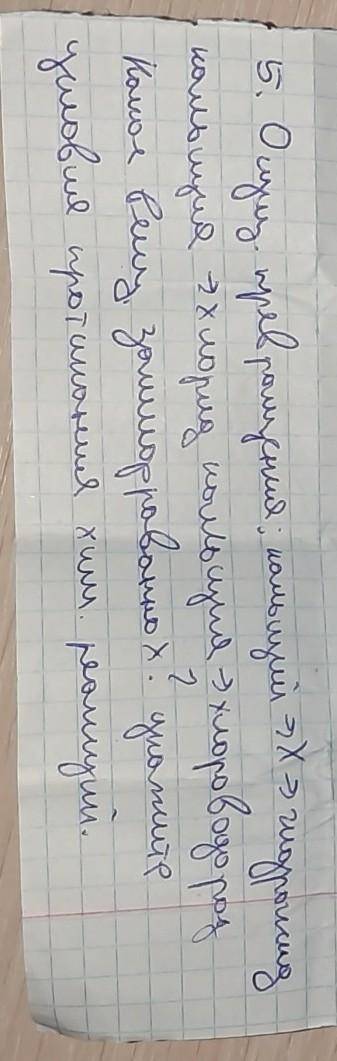 5. Осущ. превращения: кальций → X → гидроксид
кальция → хлорид кальция → хлороводород
Какое вещ. зашифрованно X? укажите
условия протикания хим. реакций.